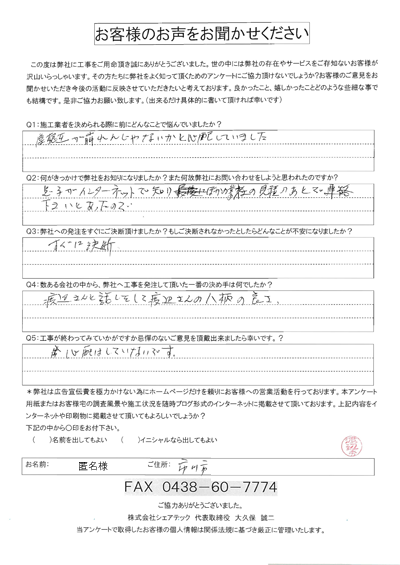 お客様のお声をお聞かせください
この度は弊社に工事をご用命頂き誠にありがとうございました。世の中には弊社の存在やサービスをご存知ないお客様が
沢山いらっしゃいます。その方たちに弊社をよく知って頂くためのアンケートにご協力頂けないでしょうか?お客様のご意見をお
聞かせいただき今後の活動に反映させていただきたいと考えております。良かったこと、嬉しかったことどのような些細な事で
も結構です。是非ご協力お願い致します。(出来るだけ具体的に書いて頂ければ幸いです)
Q1:施工業者を決められる際に前にどのようなことで悩んでいましたか?
が崩れんじゃないかと心配していました
Q2:何がきっかけで弊社をお知りになりましたか?また何故弊社にお問い合わせをしようと思われたのですか?
息子がインターネットで知り
下さいとあったので
Q3:弊社への発注をすぐにご決断頂けましたか?もしご決断されなかったとしたらどんなことが不安になりましたか?
すぐに決断
Q4:数ある会社の中から、弊社へ工事を発注して頂いた一番の決め手は何でしたか?
渡辺さんと話しをして渡辺さんの人柄の良さ
Q5:工事が終わってみていかがですか忌憚のないご意見を頂戴出来ましたら幸いです。?
心配はしていないです。
*弊社は広告宣伝費を極力かけない為にホームページだけを頼りにお客様への営業活動を行っております。本アンケート
用紙またはお客様宅の調査風景や施工状況を随時ブログ形式のインターネットに掲載させて頂いております。上記内容をイ
ンターネットや印刷物に掲載させて頂いてもよろしいでしょうか?
下記の中から〇印をお付下さい。
( )名前を出してもよい ( )イニシャルなら出してもよい
お名前: 匿名様 ご住所: 市川市
FAX 0438-60-7774
ご協力ありがとうございました。
株式会社シェアテック 代表取締役 大久保 誠二
当アンケートで取得したお客様の個人情報は関係法規に基づき厳正に管理いたします。